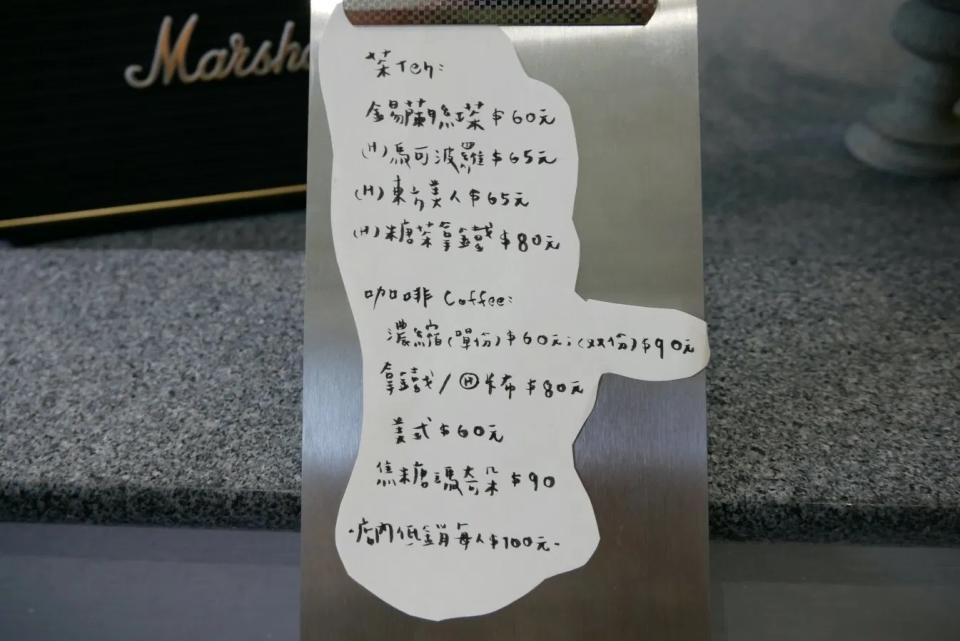 Marsha
茶Teh:
錫蘭紅茶$60元
(H)馬可波羅$65元
(H)東方美人$65元
(H)糖茶拿鐵$80元
咖啡 Coffee:
濃縮(單份)$60元;(双份)$90元
拿鐵/Ⓗ卡布$80元
美式$60元
焦糖瑪奇朵$90
·店內低銷每人$100元·